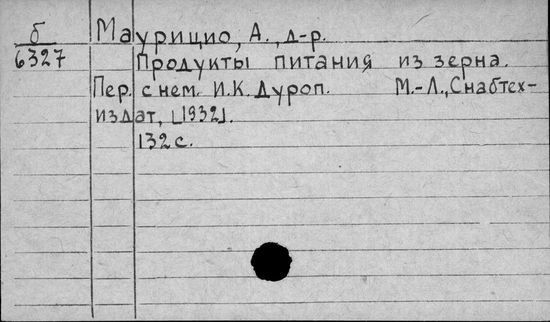 б Маурицио, А., д-р.
6327 Продукты питания из зерна.
Пер. с нем. И.К. Дуроп. М.-Л., Снабтех-
издат, [1932].
132 с.